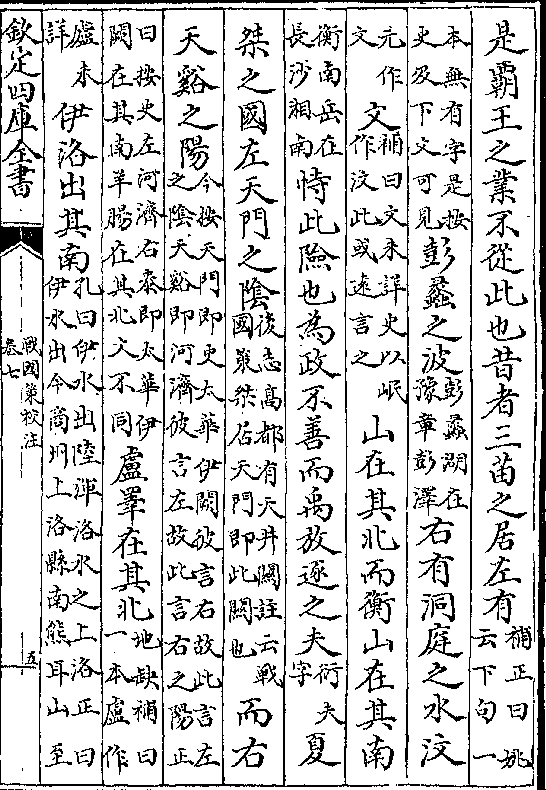 是霸王之業不從此也昔者三苗之居左有補正曰姚云下句一
本無有字是按史及下文可見彭蠡之波彭蠡湖在豫章彭澤右有洞庭之水汶
元作文文補曰文未詳史以岷作汶此或遠言之山在其北而衡山在其南
衡南岳在長沙湘南恃此險也為政不善而禹放逐之夫衍夫字夏
桀之國左天門之陰後志高都有天井闗註云戰國策桀居天門即此闗也而右
天谿之陽今按天門即史太華伊闕彼言右故此言左之陰天谿即河濟彼言左故此言右之陽正
曰按史左河濟右泰即太華伊闕在其南羊腸在其北文不同盧睪在其北地缺補曰一本盧作
虛未詳伊洛出其南孔曰伊水出陸渾洛水之上洛正曰伊水出今商州上洛縣南熊耳山至
欽定四庫全書
戰國策校注
卷七
五